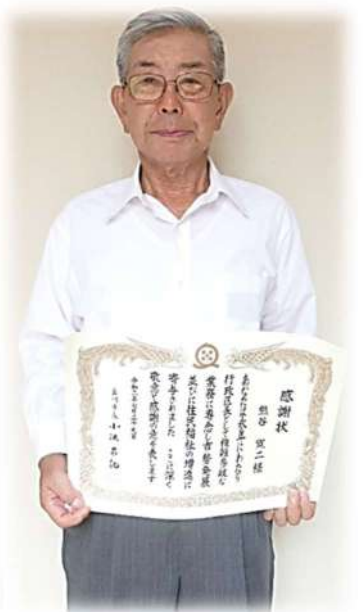 感謝状
熊谷 寛二 様
あなたは永年にわたり
行政区長として複雑多岐な
業務に専心し市勢発展
並びに住民福祉の増進に
寄与されました ここに深く
敬意と感謝の意を表します
令和
小池